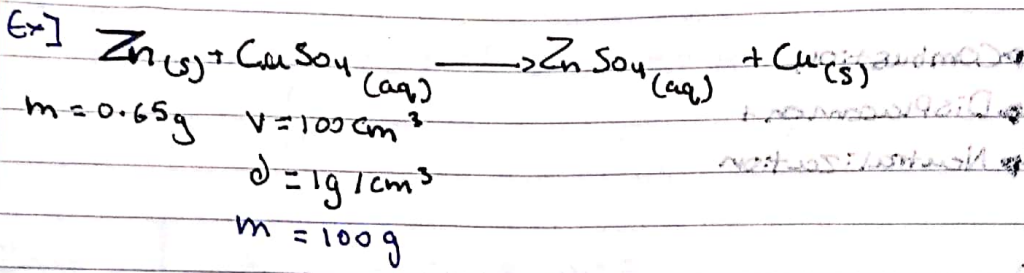 Ex] Zn(s) + CuSo4 (aq) → ZnSo4 (aq) + Cu(s)
m = 0.65g V = 100 cm³
d = 1g / cm³
m = 100g